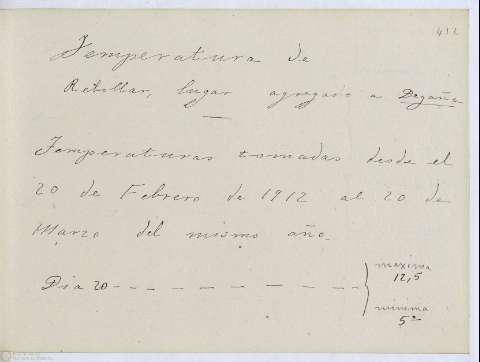 412
Temperatura de
Rebollar, lugar agregado a Degaña
Temperaturas tomadas desde el
20 de Febrero de 1912 al 20 de
Marzo del mismo año.
Dia 20 - - - - - - - - -
maxima
12,5
minima
5º